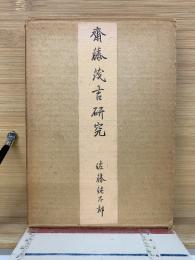 齋藤茂吉研究
佐藤佐太郎